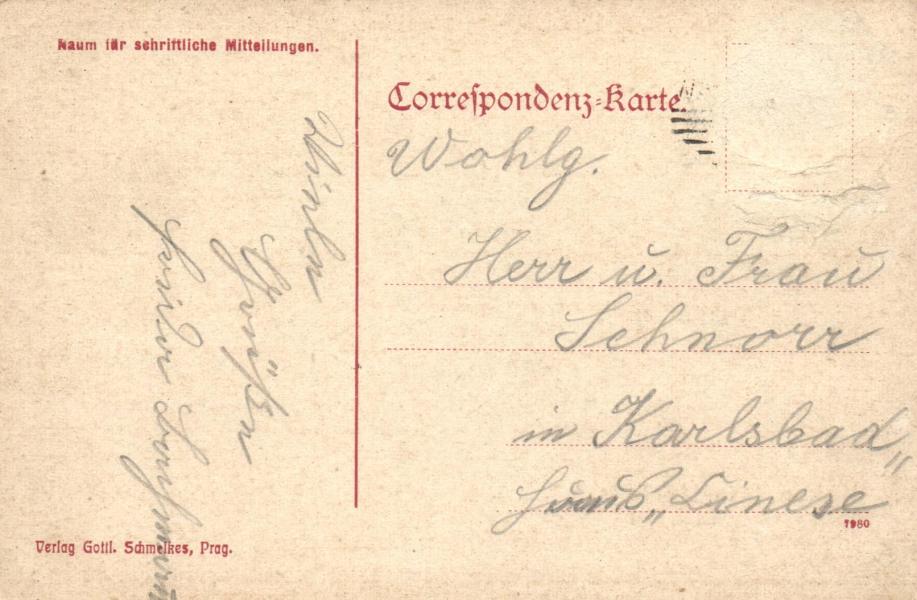 Raum für schriftliche Mitteilungen.
Correspondenz-Karte
Wohlg.
Herr u. Frau
Schnorr
in Karlsbad
Haus „Linese“
1980
Viele
Grüße
Verlag Gottl. Schmelkes, Prag.